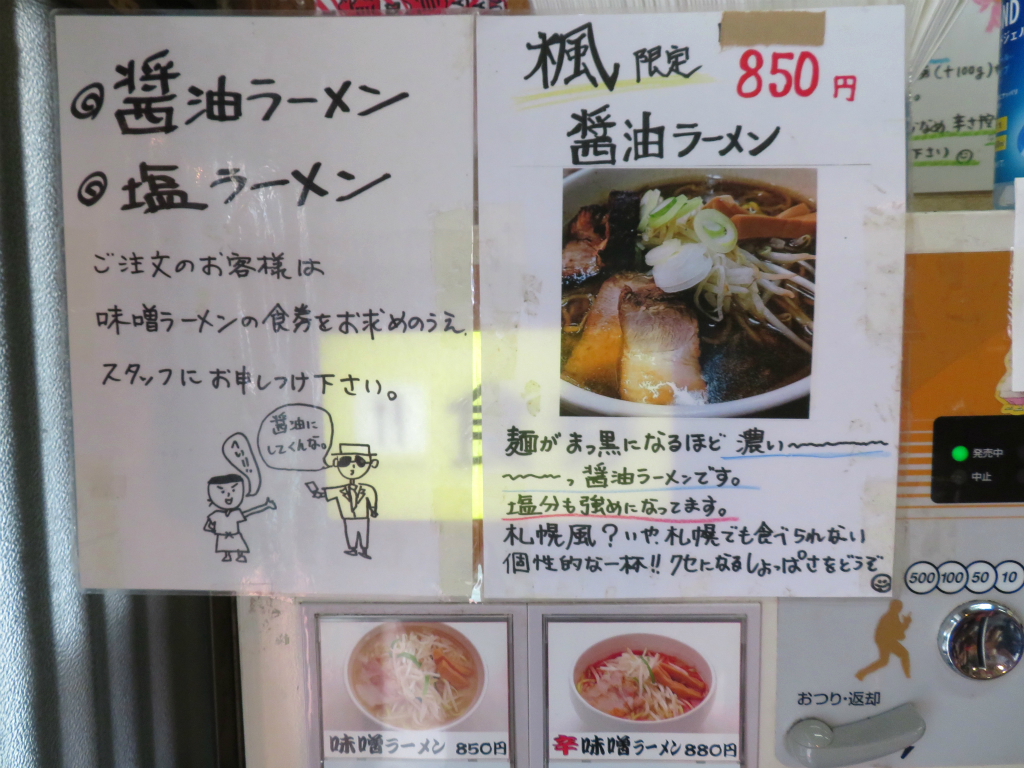 醤油ラーメン
塩ラーメン
ご注文のお客様は
味噌ラーメンの食券をお求めのうえ、
スタッフにお申しつけ下さい。
醤油に
してくんな。
へい!!
楓 限定 850円
醤油ラーメン
麺がまっ黒になるほど 濃い〜
〜っ醤油ラーメンです。
塩分も強めになってます。
札幌風?いや札幌でも食べられない
個性的な一杯!!クセになるしょっぱさをどうぞ
味噌ラーメン 850円
辛味噌ラーメン 880円
(+100g)
辛さ控
下さい)
発売中
中止
500 100 50 10
おつり・返却